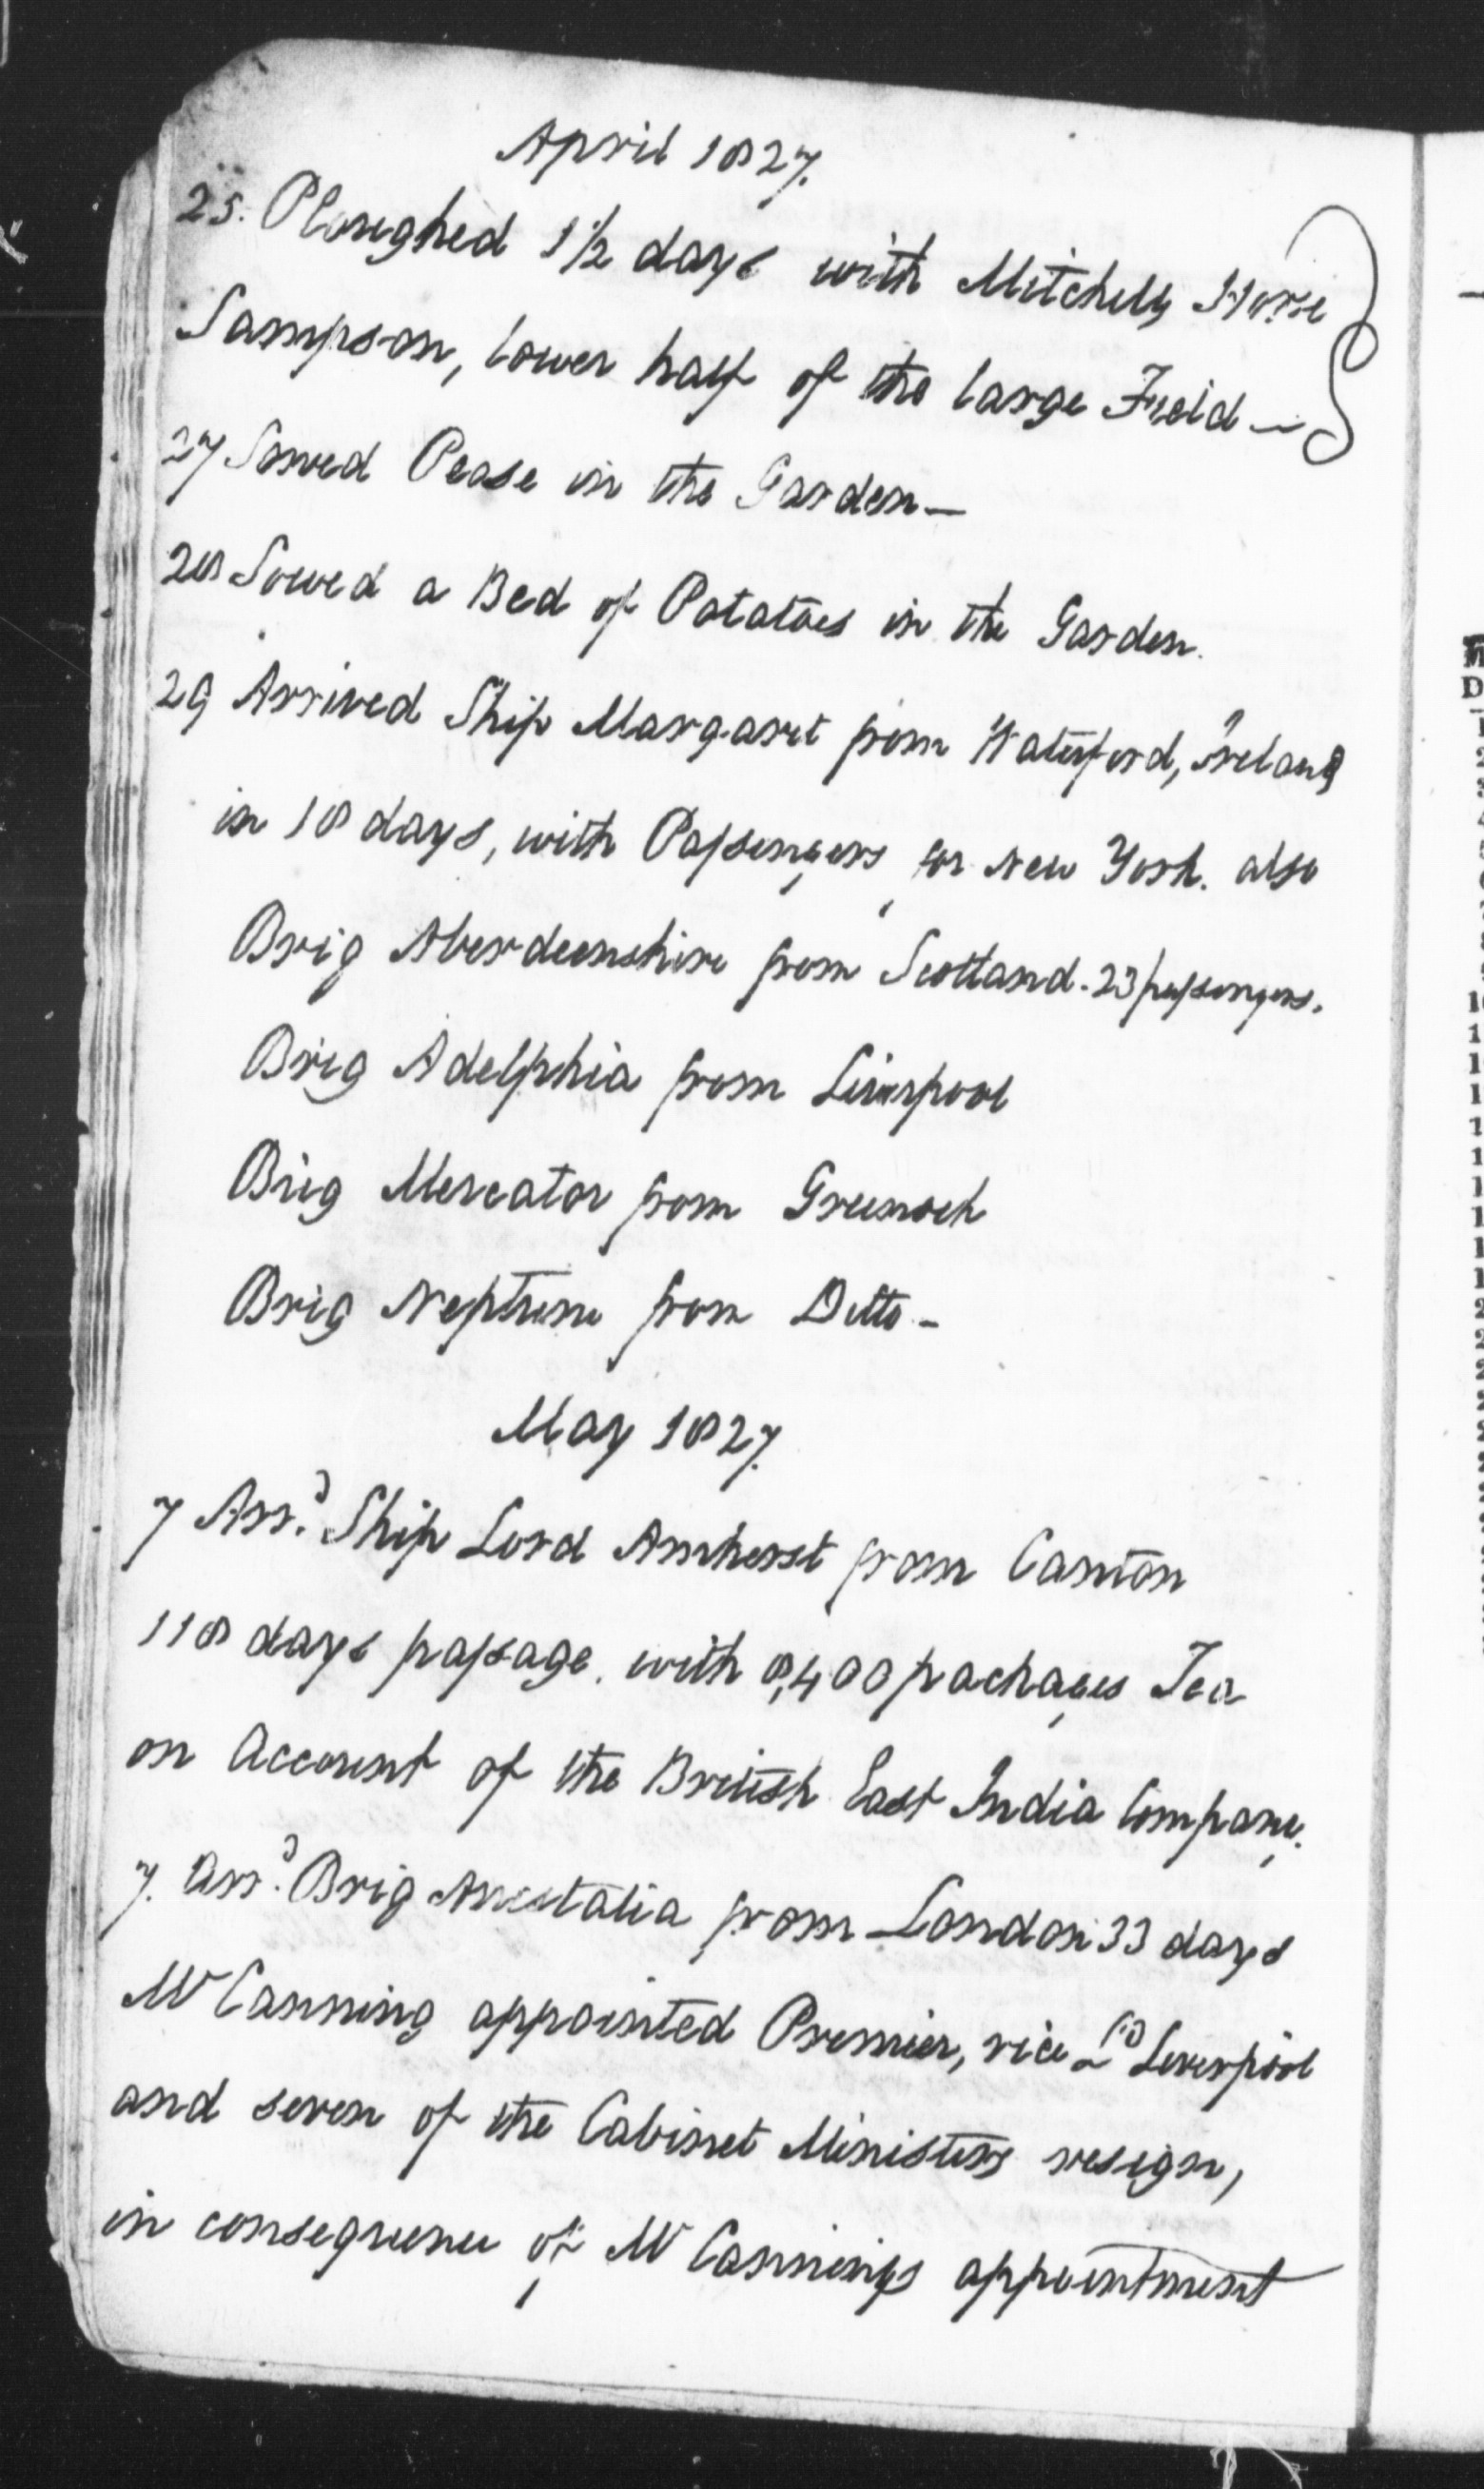 April 1827.
25. Ploughed 1 1/2 days with Mitchells Horse
Sampson, lower half of the large Field —
27 Sowed Pease in the Garden —
28 Sowed a Bed of Potatoes in the Garden.
29 Arrived Ship Margaret from Waterford, Ireland
in 18 days, with Passengers for New York. also
Brig Aberdeenshire from Scotland. 23 passengers.
Brig Adelphia from Liverpool
Brig Mercator from Greenock
Brig Neptune from Ditto -
May 1827.
7 Arrd. Ship Lord Amherst from Canton
118 days passage. with 8,400 packages Tea
on Account of the British East India Company.
7. Arrd. Brig from London 33 days
Mr Canning appointed Premier, vice Ld Liverpool
and seven of the Cabinet Ministers resign,
in consequence of Mr Cannings appointment